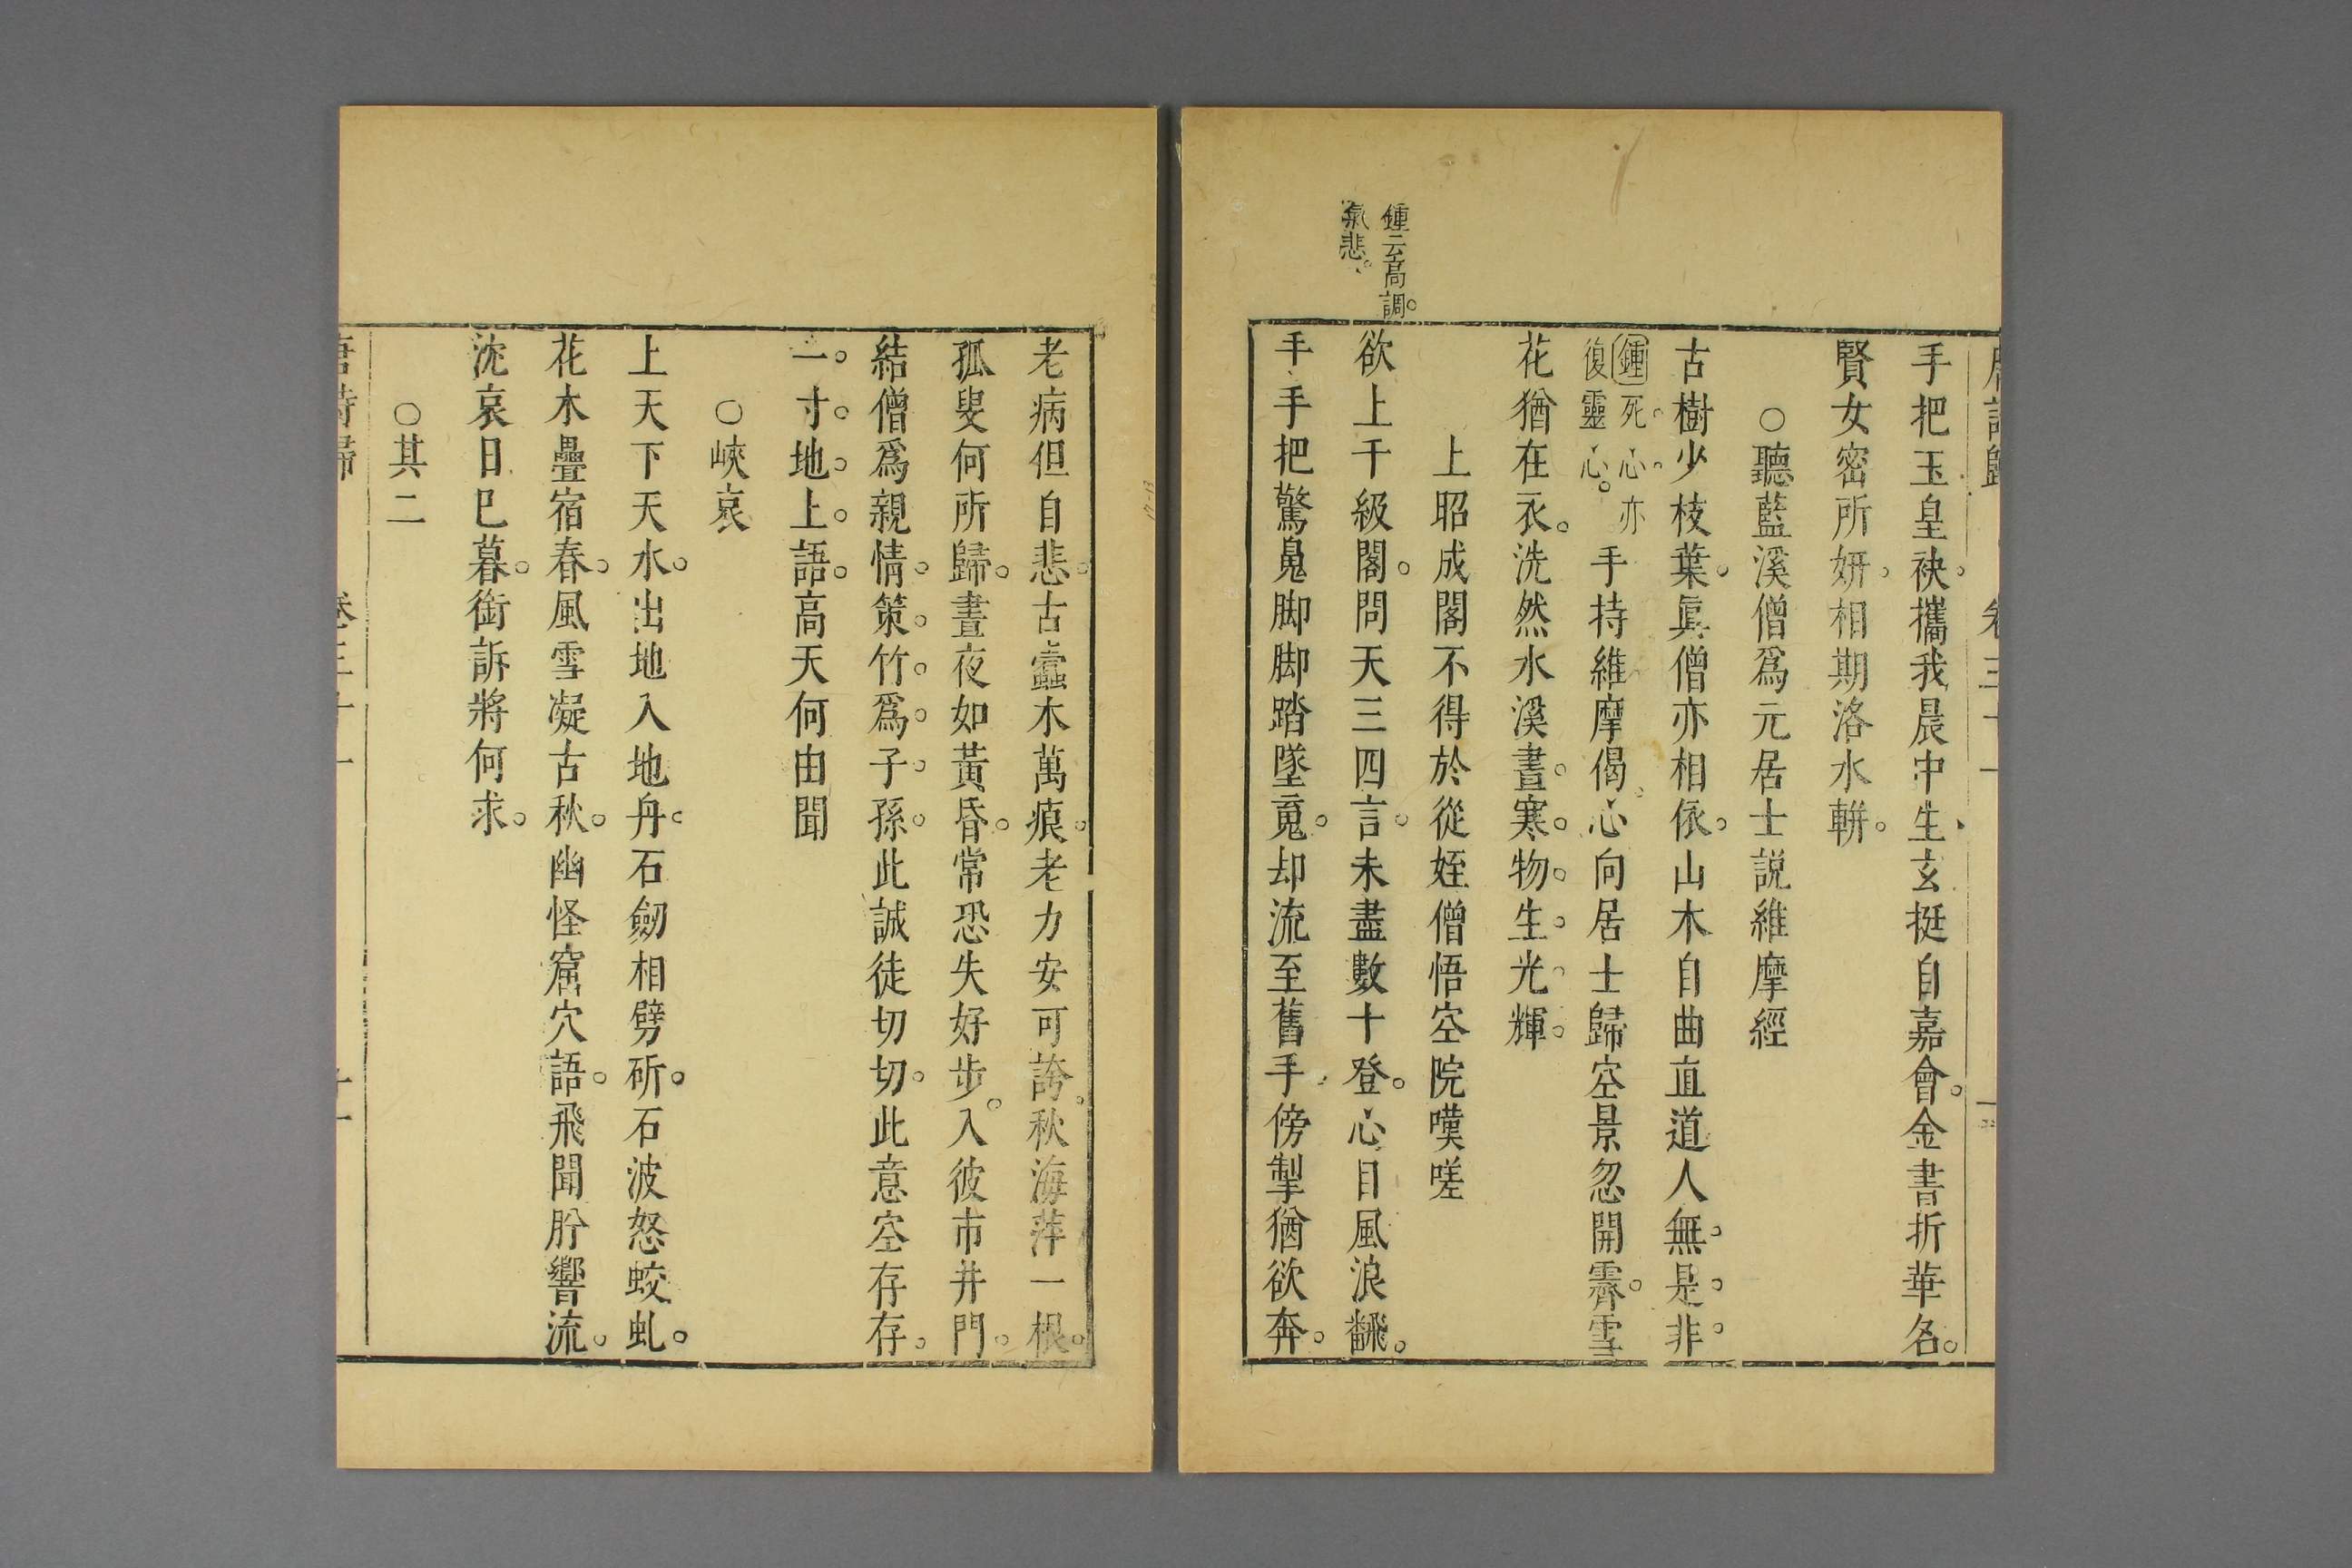 手把玉皇袂。攜我晨中生。玄挺自嘉會。金書折華名。
賢女密所妍。相期洛水輧。
○聽藍溪僧爲元居士說維摩經
古樹少枝葉。眞僧亦相依。山木自曲直道人無。是。非。
鍾死。心。亦
復靈心。
手持維摩偈。心向居士歸空景忽開霽。雪
花猶在衣。洗然水溪晝。寒。物。生。光。輝。
上昭成閣不得於從姪僧悟空院嘆嗟
鍾云高調。
氣悲。
欲上千級閣。問天三四言。未盡數十登。心目風浪飜。
手手把驚鬼脚脚踏墜䰟。却流至舊手傍掣猶欲奔。
老病但自悲。古蠹木萬痕。老力安可誇。秋海萍一根。
孤叟何所歸。晝夜如黃昏。常恐失好步。入彼市井門。
結僧爲親情。策。竹。爲。子。孫。此誠徒切切。此意空存存。
一。寸。地。上。語。高天何由聞
○峽哀
上天下天水。出地入地舟。石劒相劈斫。石波怒蛟虬。
花木疊宿春。風雪凝古秋。幽怪窟穴語。飛聞肸響流。
沈哀日巳暮。銜訴將何求。
○其二
唐詩歸 卷三十一